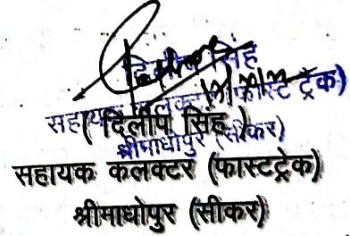 दिलीप सिंह
सहायक कलक्टर (फास्ट ट्रैक)
श्रीमाधोपुर (सीकर)
( दिलीप सिंह )
सहायक कलक्टर (फास्टट्रेक)
श्रीमाधोपुर (सीकर)